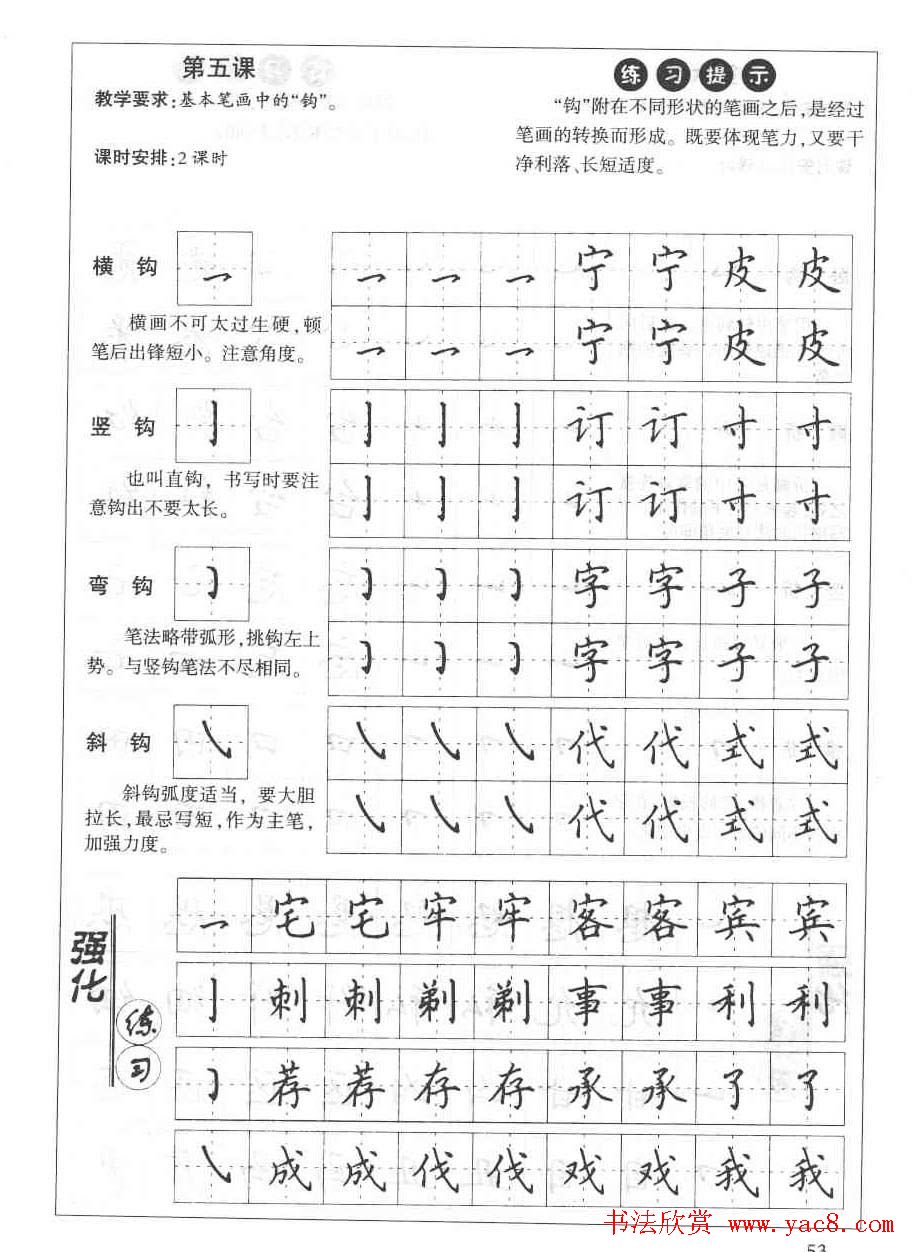 第五课
教学要求:基本笔画中的“钩”。
课时安排:2课时
练习提示
“钩”附在不同形状的笔画之后,是经过
笔画的转换而形成。既要体现笔力,又要干
净利落、长短适度。
横钩 ㇖ ㇖ ㇖ ㇖ 宁 宁 皮 皮
横画不可太过生硬,顿
笔后出锋短小。注意角度。
㇖ ㇖ ㇖ 宁 宁 皮 皮
竖钩 亅 亅 亅 亅 订 订 寸 寸
也叫直钩,书写时要注
意钩出不要太长。
亅 亅 亅 订 订 寸 寸
弯钩 ㇁ ㇁ ㇁ ㇁ 字 字 子 子
笔法略带弧形,挑钩左上
势。与竖钩笔法不尽相同。
㇁ ㇁ ㇁ 字 字 子 子
斜钩 ㇂ ㇂ ㇂ ㇂ 代 代 式 式
斜钩弧度适当,要大胆
拉长,最忌写短,作为主笔,
加强力度。
㇂ ㇂ ㇂ 代 代 式 式
强化
练习
㇖ 宅 宅 牢 牢 客 客 宾 宾
亅 刺 刺 剃 剃 事 事 利 利
㇁ 荐 荐 存 存 承 承 了 了
㇂ 成 成 伐 伐 戏 戏 我 我
书法欣赏 www.yac8.com
53